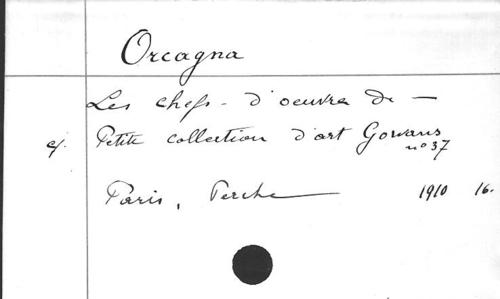 Orcagna
Les chefs-d'oeuvre de —
cf. Petite collection d'art Gowans
n° 37
Paris, Perche 1910 16.